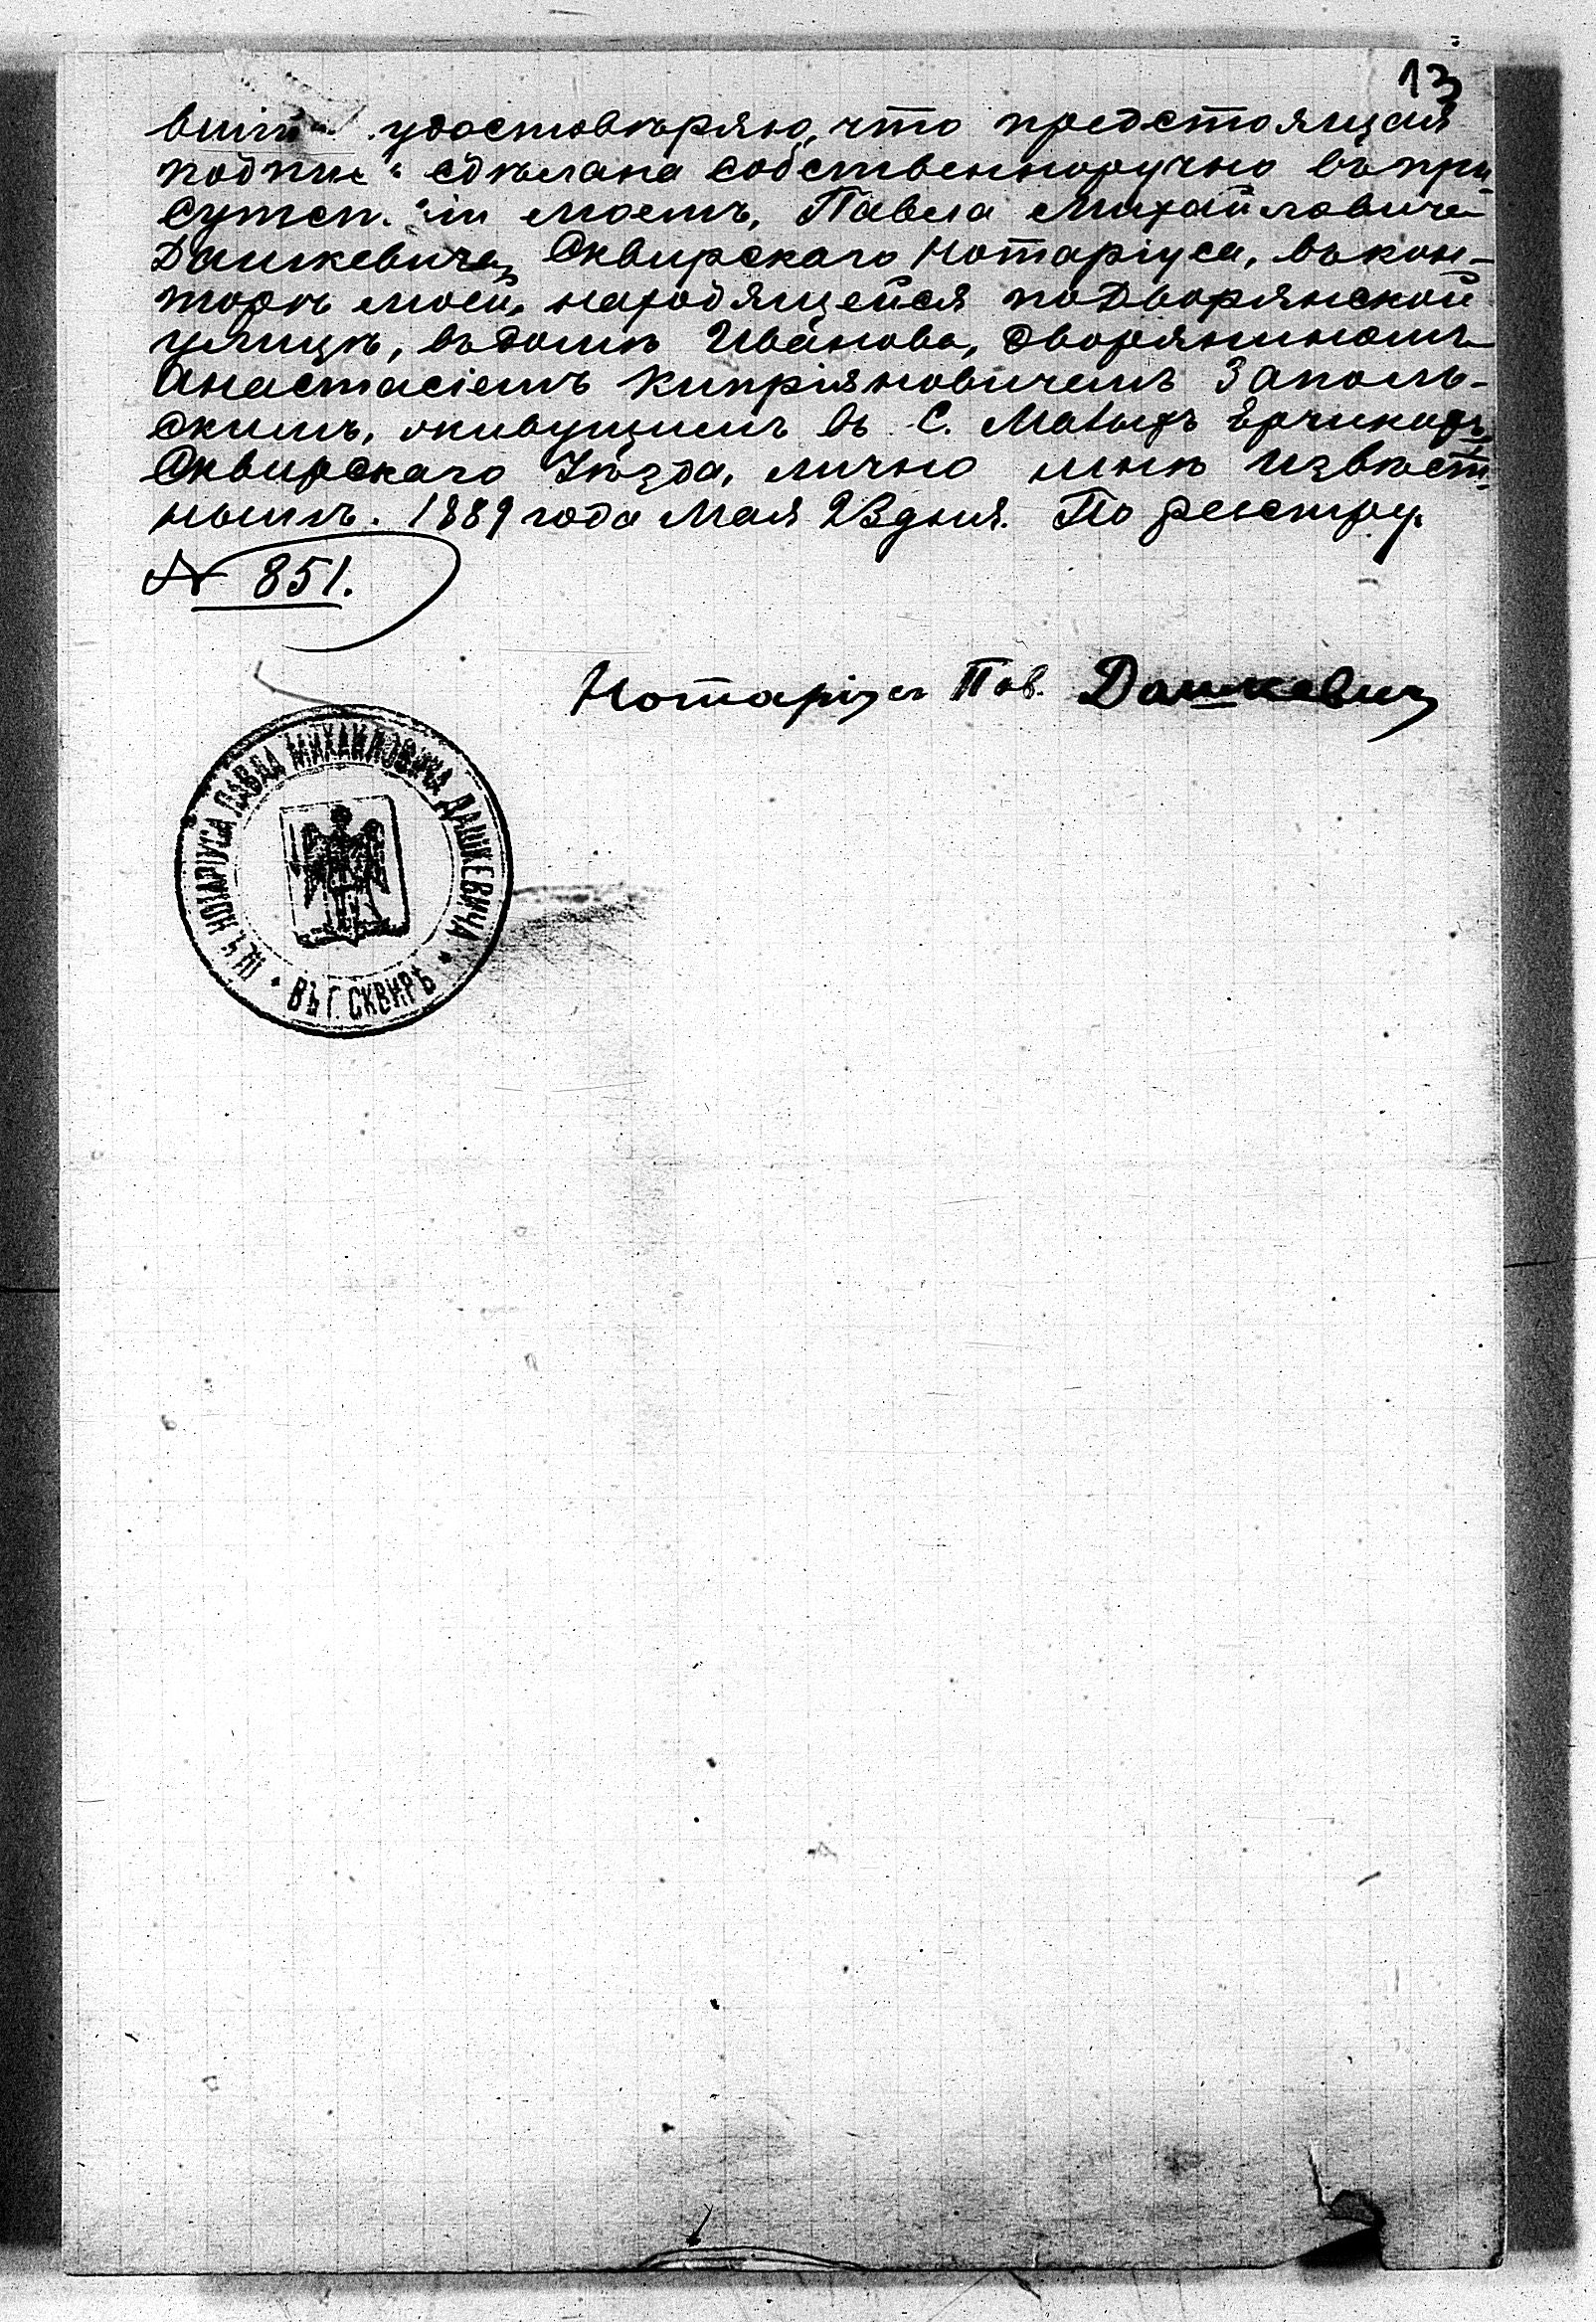 13
удостовѣряю, что предстоящая
подпись сдѣлана собственноручно въ при-
сутст..іи моемъ, Павла Михайловича
Дашкевича, Сквирскаго Нотаріуса, въ кон-
торѣ моей, находящейся по Дворянской
улицѣ, въ домѣ Иванова, дворяниномъ
Анастасіемъ Кипріяновичемъ Заполь-
скимъ, живущимъ въ С. Малыхъ Ерчикахъ,
Сквирскаго Уѣзда, лично мнѣ извѣст-
нымъ. 1889 года Мая 23 дня. По реестру
№ 851.
Нотаріусъ Пав. Дашкевич
НОТАРІУСА ПАВЛА МИХАИЛОВИЧА ДАШКЕВИЧА
ВЪ Г. СКВИРѢ